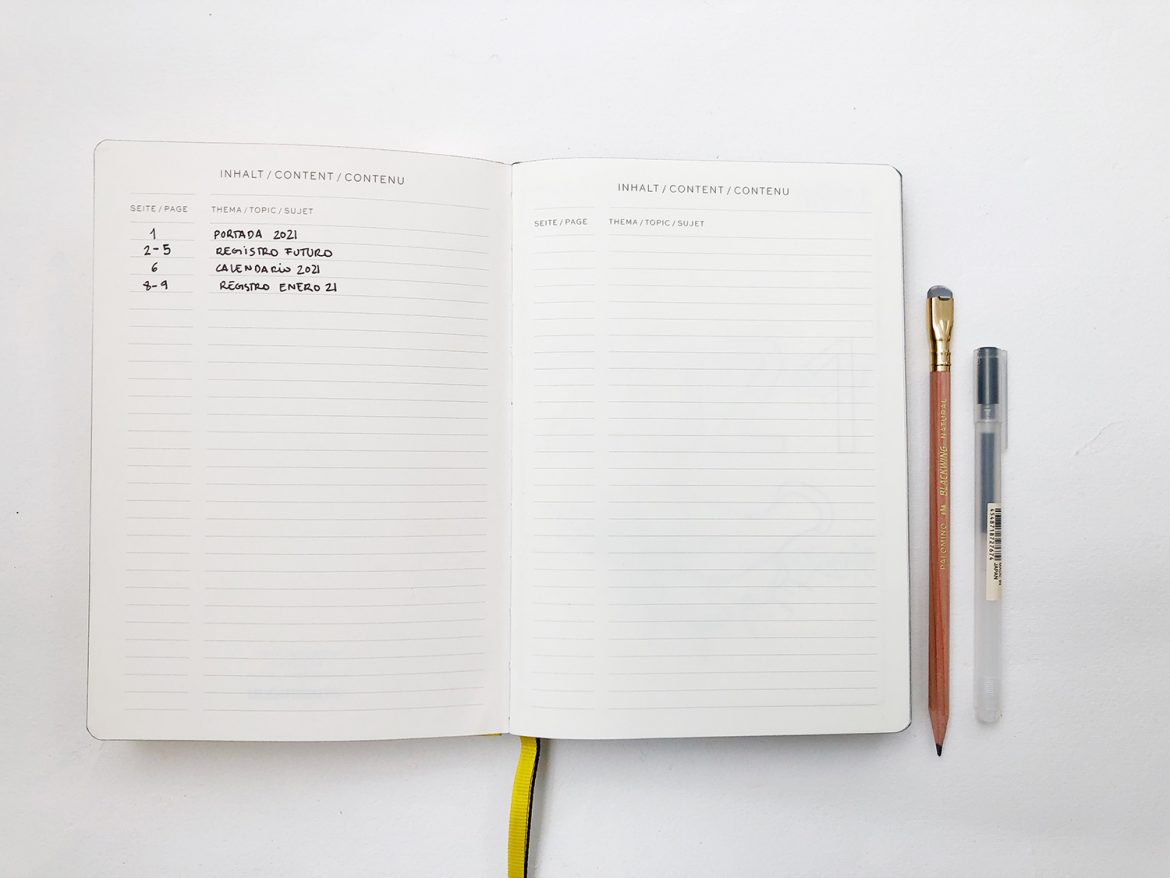 INHALT / CONTENT / CONTENU
SEITE / PAGE THEMA / TOPIC / SUJET
1 PORTADA 2021
2-5 REGISTRO FUTURO
6 CALENDARIO 2021
8-9 REGISTRO ENERO 21
INHALT / CONTENT / CONTENU
SEITE / PAGE THEMA / TOPIC / SUJET
PALOMINO BLACKWING NATURAL
4548718727674
JAPAN